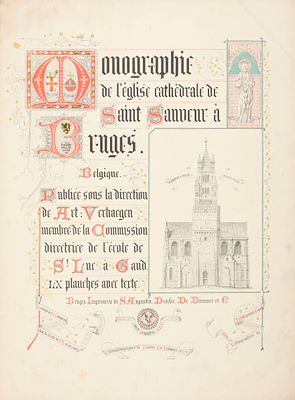 Monographie
de l'église cathédrale de
Saint Sauveur à
Bruges.
Belgique.
Publiée sous la direction
de Art: Verhaegen
membre de la Commission
directrice de l'école de
St Luc à Gand.
LX planches avec texte
Bruges, Imprimerie de S. Augustin, Desclée, De Brouwer et Cie